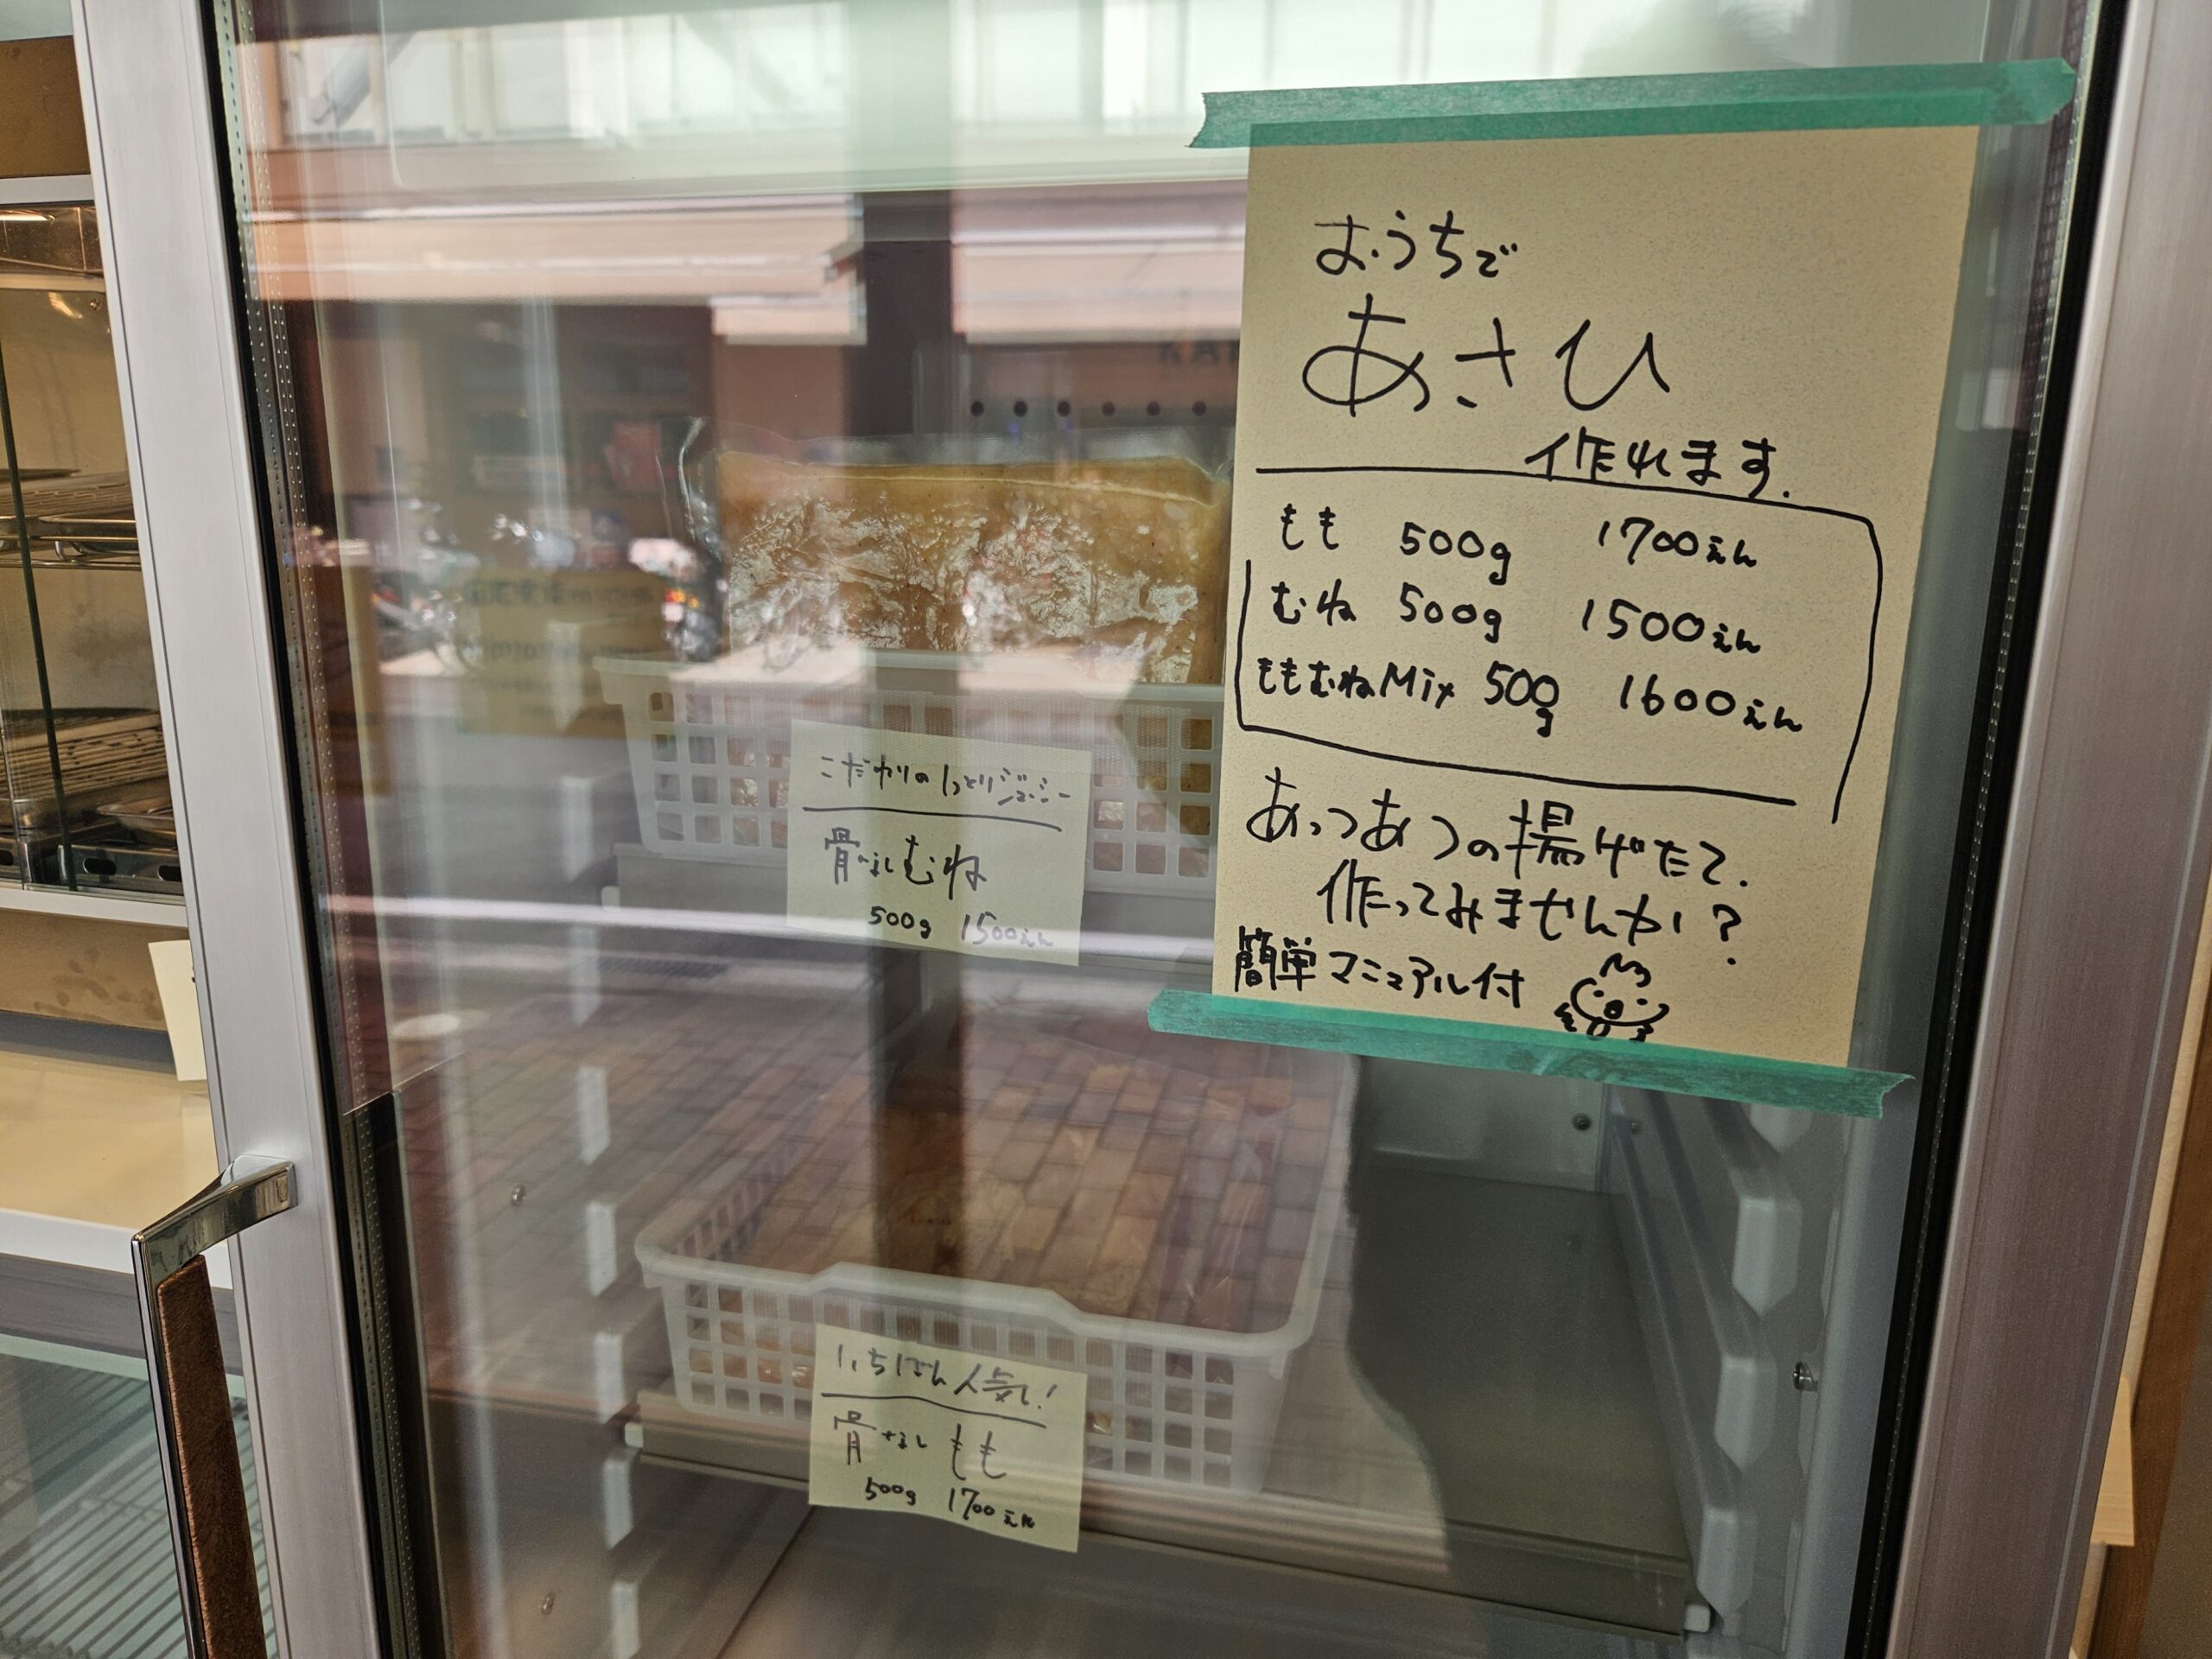 おうちで
あさひ
作れます.
もも 500g 1700えん
むね 500g 1500えん
ももむねMix 500g 1600えん
あっつあつの揚げたて.
作ってみませんか?
簡単マニュアル付
こだわりのしっとりジューシー
骨なしむね
500g 1500えん
いちばん人気!
骨なしもも
500g 1700えん